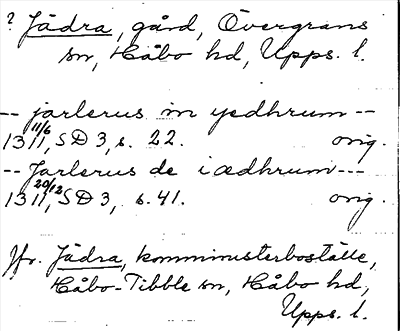 ? Jädra, gård, Övergrans
sn, Håbo hd, Upps. l.
-- jarlerus in yedhrum --
1311 11/6, SD 3, s. 22. orig.
-- Jarlerus de iædhrum --
1311 20/12, SD 3, s. 41. orig.
Jfr. Jädra, komministerboställe,
Håbo-Tibble sn, Håbo hd,
Upps. l.